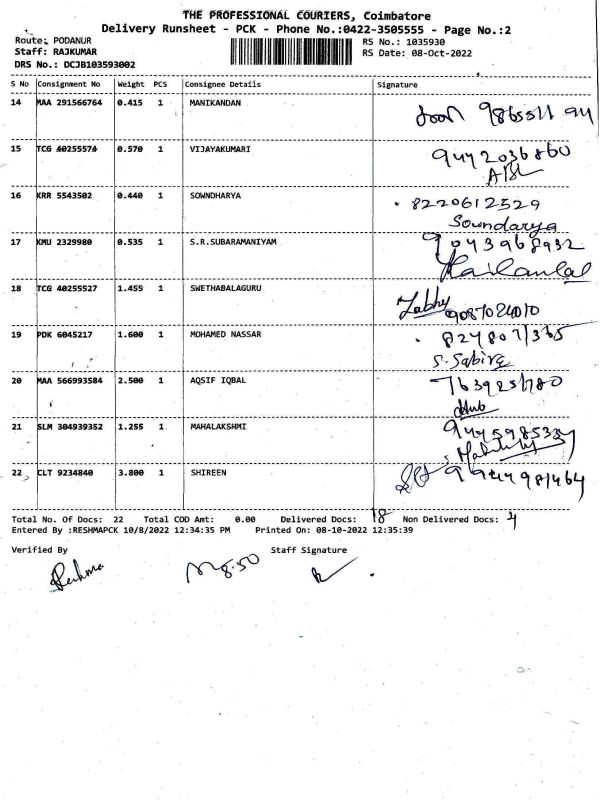 THE PROFESSIONAL COURIERS, Coimbatore
Delivery Runsheet - PCK - Phone No.:0422-3505555 - Page No.:2
Route: PODANUR
RS No.: 1035930
Staff: RAJKUMAR
RS Date: 08-Oct-2022
DRS No.: DCJB103593002
S No Consignment No Weight PCS Consignee Details Signature
14 MAA 291566764 0.415 1 MANIKANDAN
15 TCG 40255574 0.570 1 VIJAYAKUMARI 9442036860
16 KRR 5543502 0.440 1 SOWNDHARYA 8220612529
Soundarya
17 KMU 2329980 0.535 1 S.R.SUBARAMANIYAM 9043968932
18 TCG 40255527 1.455 1 SWETHABALAGURU
9087024010
19 PDK 6045217 1.600 1 MOHAMED NASSAR 8248071365
S. Sabira
20 MAA 566993584 2.500 1 AQSIF IQBAL
21 SLM 304939352 1.255 1 MAHALAKSHMI
22 CLT 9234840 3.800 1 SHIREEN
Total No. Of Docs: 22 Total COD Amt: 0.00 Delivered Docs: 18 Non Delivered Docs: 4
Entered By :RESHMAPCK 10/8/2022 12:34:35 PM Printed On: 08-10-2022 12:35:39
Verified By Staff Signature
Reshma 8.50